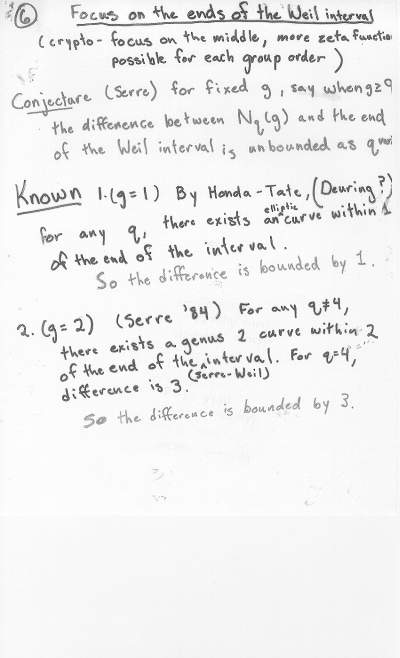 6 Focus on the ends of the Weil interval
(crypto - focus on the middle, more zeta functio
possible for each group order)
Conjecture (Serre) for fixed g, say when g≥9
the difference between Nq(g) and the end
of the Weil interval is unbounded as q vari
Known 1. (g=1) By Honda-Tate, (Deuring?)
for any q, there exists an elliptic curve within 1
of the end of the interval.
So the difference is bounded by 1.
2. (g=2) (Serre '84) For any q≠4,
there exists a genus 2 curve within 2
of the end of the (Serre-Weil) interval. For q=4,
difference is 3.
So the difference is bounded by 3.